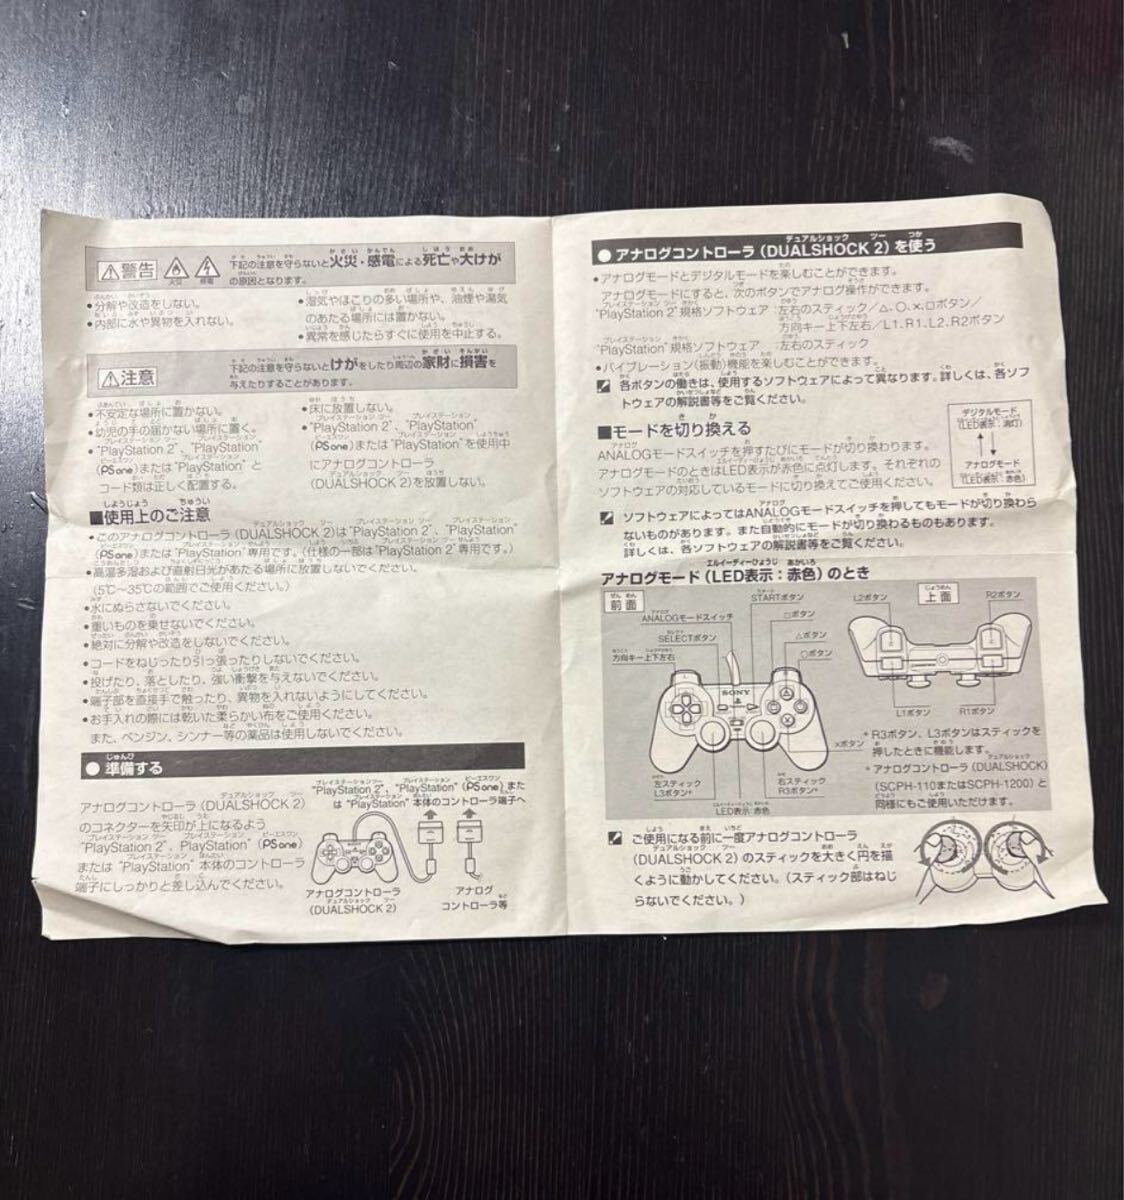 ⚠警告 火災 感電 下記の注意を守らないと火災・感電による死亡や大けが
の原因となります。
●分解や改造をしない。
●内部に水や異物を入れない。
●湿気やほこりの多い場所や、油煙や湯気
のあたる場所には置かない。
●異常を感じたらすぐに使用を中止する。
⚠注意 下記の注意を守らないとけがをしたり周辺の家財に損害を
与えたりすることがあります。
●不安定な場所に置かない。
●幼児の手の届かない場所に置く。
●"PlayStation 2"、"PlayStation"
(PS one)または"PlayStation"と
コード類は正しく配置する。
●床に放置しない。
●"PlayStation 2"、"PlayStation"
(PS one)または"PlayStation"を使用中
にアナログコントローラ
(DUALSHOCK 2)を放置しない。
■使用上のご注意
●このアナログコントローラ(DUALSHOCK 2)は"PlayStation 2"、"PlayStation"
(PS one)または"PlayStation"専用です。(仕様の一部は"PlayStation 2"専用です。)
●高温多湿および直射日光があたる場所に放置しないでください。
(5℃〜35℃の範囲でご使用ください。)
●水にぬらさないでください。
●重いものを乗せないでください。
●絶対に分解や改造をしないでください。
●コードをねじったり引っ張ったりしないでください。
●投げたり、落としたり、強い衝撃を与えないでください。
●端子部を直接手で触ったり、異物を入れないようにしてください。
●お手入れの際には乾いた柔らかい布をご使用ください。
また、ベンジン、シンナー等の薬品は使用しないでください。
●準備する
アナログコントローラ(DUALSHOCK 2)
のコネクターを矢印が上になるよう
"PlayStation 2"、"PlayStation"(PS one)
または"PlayStation"本体のコントローラ
端子にしっかりと差し込んでください。
"PlayStation 2"、"PlayStation"(PS one)また
は"PlayStation"本体のコントローラ端子へ
アナログコントローラ
(DUALSHOCK 2)
アナログ
コントローラ等
●アナログコントローラ(DUALSHOCK 2)を使う
●アナログモードとデジタルモードを楽しむことができます。
アナログモードにすると、次のボタンでアナログ操作ができます。
"PlayStation 2"規格ソフトウェア:左右のスティック/△、○、×、□ボタン/
方向キー上下左右/L1、R1、L2、R2ボタン
"PlayStation"規格ソフトウェア:左右のスティック
●バイブレーション(振動)機能を楽しむことができます。
各ボタンの働きは、使用するソフトウェアによって異なります。詳しくは、各ソフ
トウェアの解説書等をご覧ください。
■モードを切り換える
ANALOGモードスイッチを押すたびにモードが切り換わります。
アナログモードのときはLED表示が赤色に点灯します。それぞれの
ソフトウェアの対応しているモードに切り換えてご使用ください。
デジタルモード
(LED表示:消灯)
アナログモード
(LED表示:赤色)
ソフトウェアによってはANALOGモードスイッチを押してもモードが切り換わら
ないものがあります。また自動的にモードが切り換わるものもあります。
詳しくは、各ソフトウェアの解説書等をご覧ください。
アナログモード(LED表示:赤色)のとき
前面
STARTボタン
ANALOGモードスイッチ
□ボタン
SELECTボタン
△ボタン
方向キー上下左右
○ボタン
SONY
×ボタン
左スティック
L3ボタン*
右スティック
R3ボタン*
LED表示:赤色
L2ボタン
上面
R2ボタン
L1ボタン
R1ボタン
*R3ボタン、L3ボタンはスティックを
押したときに機能します。
*アナログコントローラ(DUALSHOCK)
(SCPH-110またはSCPH-1200)と
同様にもご使用いただけます。
ご使用になる前に一度アナログコントローラ
(DUALSHOCK 2)のスティックを大きく円を描
くように動かしてください。(スティック部はねじ
らないでください。)